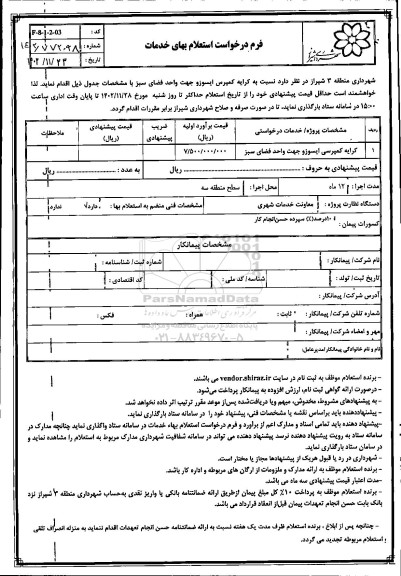 فرم درخواست استعلام بهای خدمات
کد : F-8-1-2-03
شماره :
تاریخ : ۱۴۰۲/۱۱/۲۳
شهرداری منطقه ۳ شیراز در نظر دارد نسبت به کرایه کمپرس ایسوزو جهت واحد فضای سبز با مشخصات جدول ذیل اقدام نماید. لذا
خواهشمند است حداقل قیمت پیشنهادی خود را از تاریخ استعلام حداکثر تا روز شنبه مورخ ۱۴۰۲/۱۱/۲۸ تا پایان وقت اداری ساعت
۱۵:۰۰ در سامانه ستاد بارگذاری نمایید، تا در صورت صرفه و صلاح شهرداری شیراز برابر مقررات اقدام گردد.
ردیف مشخصات پروژه/ خدمات درخواستی قیمت برآورد اولیه (ریال) ضریب پیشنهادی قیمت پیشنهادی (ریال) ملاحظات
۱ کرایه کمپرسی ایسوزو جهت واحد فضای سبز ۷/۵۰۰/۰۰۰/۰۰۰
قیمت پیشنهادی به حروف : ریال به عدد : ریال
مدت اجرا : ۱۲ ماه محل اجرا : سطح منطقه سه
دستگاه نظارت پروژه : معاونت خدمات شهری مشخصات فنی منضم به استعلام بها : دارد ندارد
کسورات پیمان : ۱۰درصد(٪) سپرده حسن‌انجام کار
مشخصات پیمانکار
نام شرکت/ پیمانکار : شماره ثبت/ شناسنامه :
تاریخ ثبت/ تولد : شناسه/ کد ملی : کد اقتصادی :
آدرس شرکت/ پیمانکار :
شماره تلفن شرکت/ پیمانکار : ثابت : همراه : فکس :
مهر و امضاء شرکت/ پیمانکار :
نام و نام خانوادگی پیمانکار/مدیرعامل:
ParsNamadData
۰۲۱-۸۸۳۴۹۶۷۰-۵
- برنده استعلام موظف به ثبت نام در سایت vendor.shiraz.ir می باشند.
- درصورت ارائه گواهی ثبت نام، ارزش افزوده به پیمانکار پرداخت می‌شود.
- به پیشنهادهای مشروط، مخدوش، مبهم ویا دریافت‌شده پس‌از موعد مقرر ترتیب اثر داده نخواهد شد.
- پیشنهاددهنده باید براساس نقشه یا مشخصات فنی، پیشنهاد خود را در سامانه ستاد بارگذاری نماید.
-پیشنهاد دهنده باید تمامی اسناد و مدارک اعم از برآورد و فرم درخواست استعلام بهاء خدمات در سامانه ستاد واگذاری نماید چنانچه مدارک در
سامانه ستاد به رویت پیشنهاد دهنده نرسد پیشنهاد دهنده می تواند در سامانه شفافیت شهرداری مدارک مربوط به استعلام را مشاهده نماید و
در سامان ستاد بارگذاری نماید.
- شهرداری در رد یا قبول هریک از پیشنهادها مجاز یا مختار است.
- برنده استعلام موظف به ارائه مدارک و ملزومات از ارگان های مربوطه و اداره کار باشد.
-مدت اعتبار قیمت پیشنهادی سه ماه می باشد.
- برنده استعلام موظف به پرداخت ۱۰٪ کل مبلغ پیمان ازطریق ارائه ضمانتنامه بانکی یا واریز نقدی به‌حساب شهرداری منطقه ۳ شیراز نزد
بانک بابت حسن انجام تعهدات پیمان قبل‌از انعقاد قرارداد می باشد.
- چنانچه پس از ابلاغ ، برنده استعلام ظرف مدت یک هفته نسبت به ارائه ضمانتنامه حسن انجام تعهدات اقدام ننماید به منزله انصراف تلقی
و استعلام مربوطه تجدید می گردد.